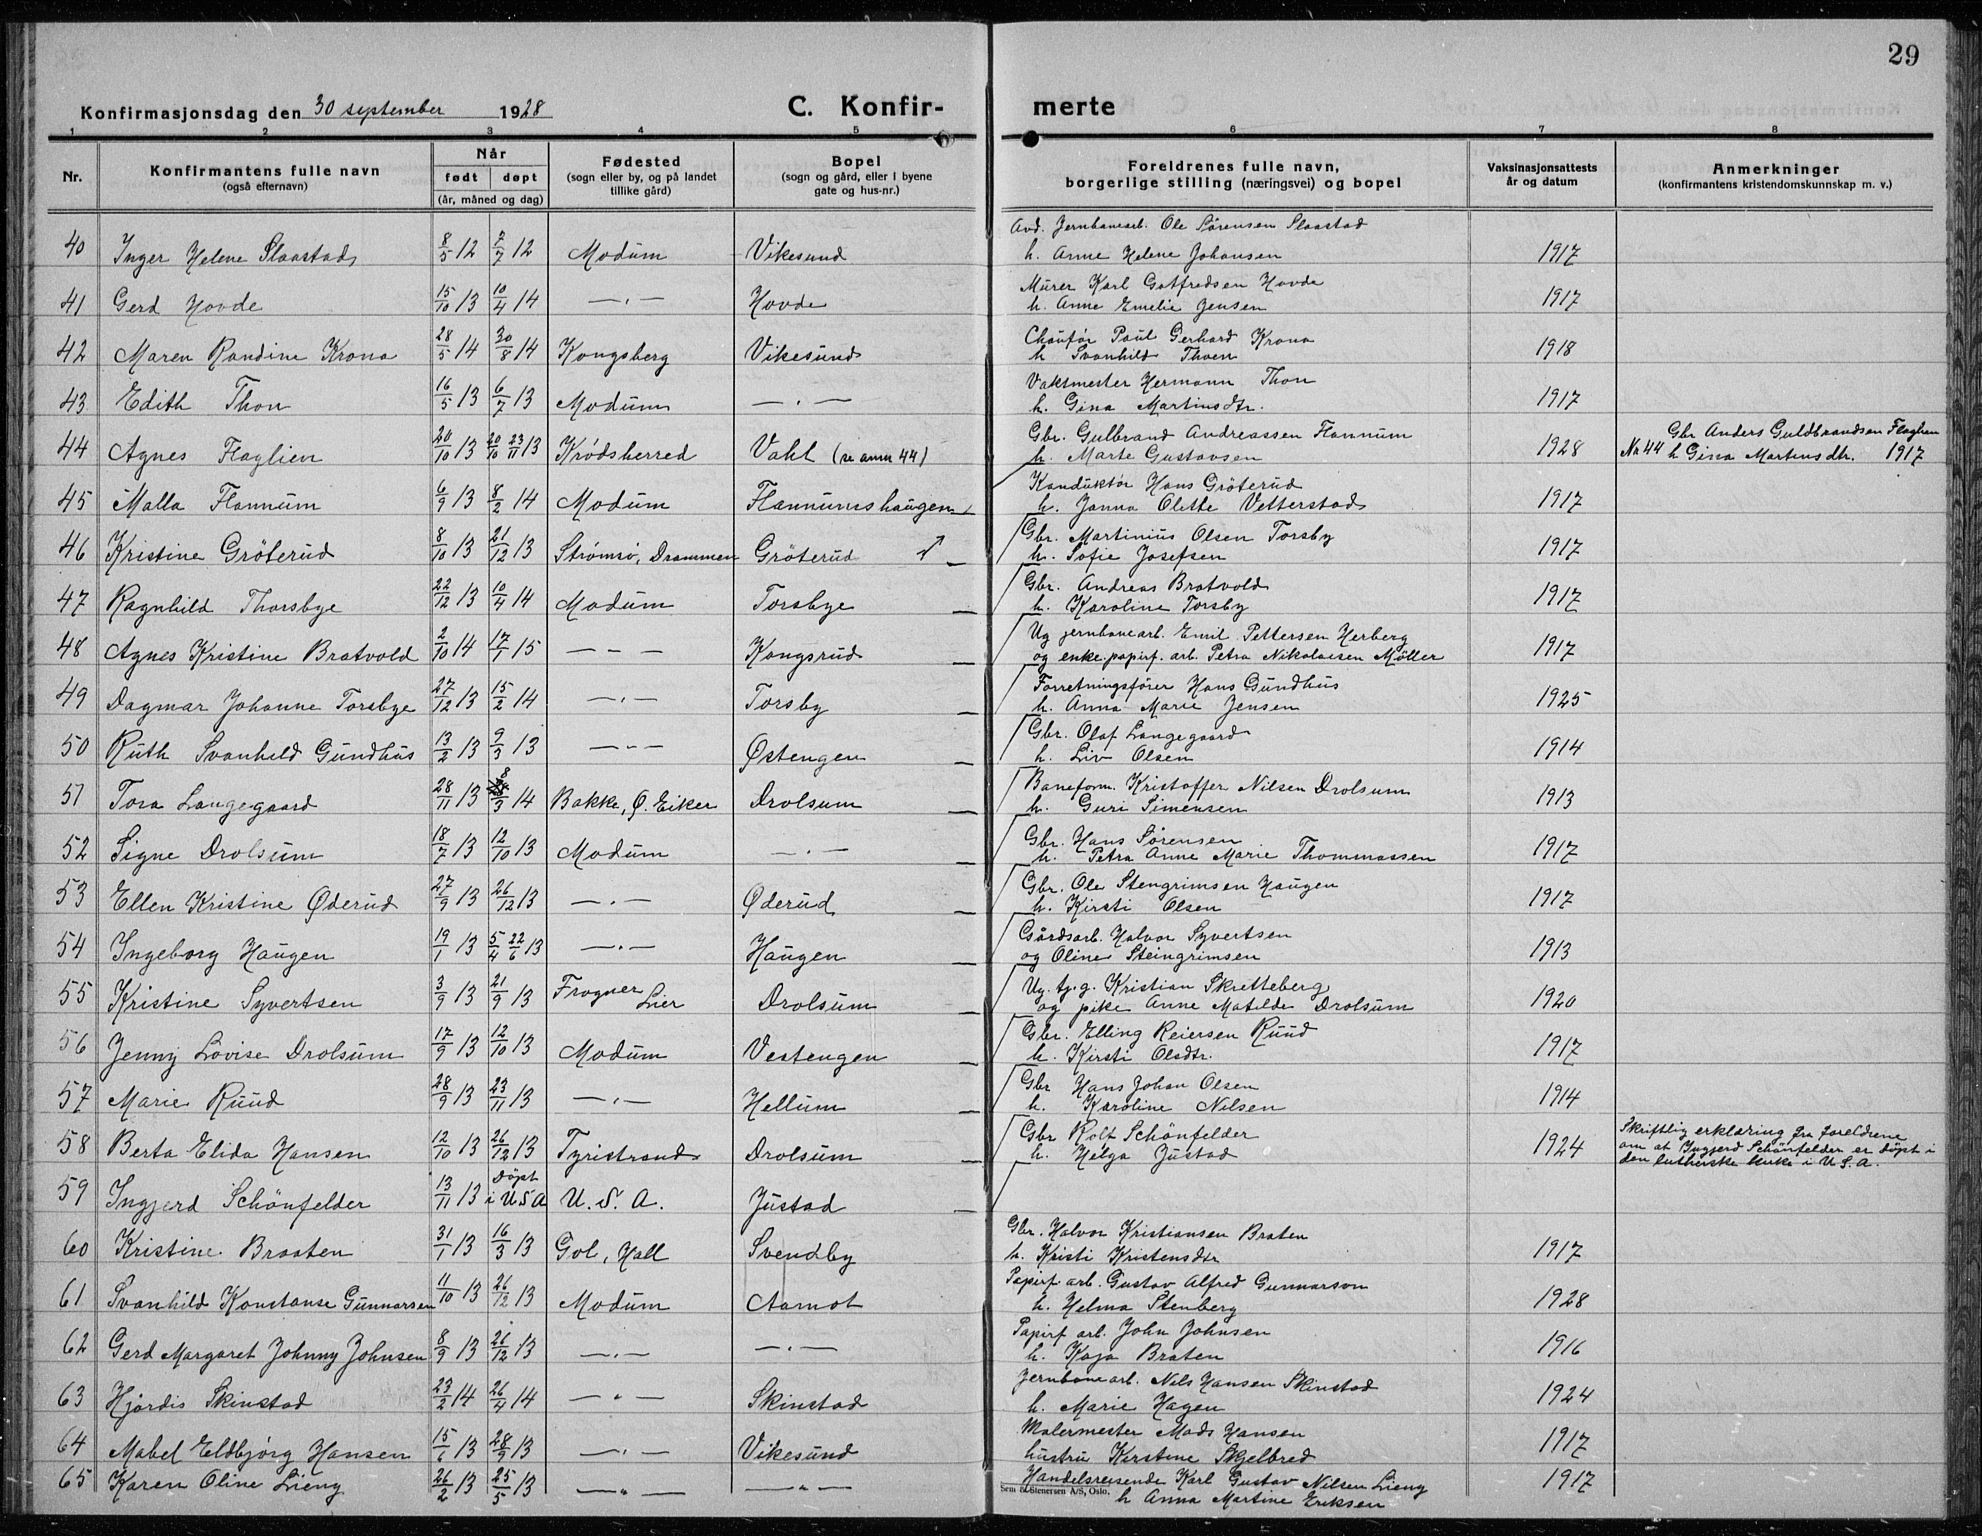 29
Konfirmasjonsdag den 30 september 1928 C. Konfir- merte
1 2 3 4 5 6 7 8
Nr. Konfirmantens fulle navn (også efternavn) Når født døpt (år, måned og dag) Fødested (sogn eller by, og på landet tillike gård) Bopel (sogn og gård, eller i byene gate og hus-nr.) Foreldrenes fulle navn, borgerlige stilling (næringsvei) og bopel Vaksinasjonsattests år og datum Anmerkninger (konfirmantens kristendomskunnskap m. v.)
Avd. Jernbanearb. Ole Sørensen Slaastad
40 Inger Helene Slaastad 8/5 12 7/7 12 Modum Vikesund h. Anne Helene Johansen 1917
Murer Karl Gotfredsen Hovde
41 Gerd Hovde 15/10 13 10/4 14 — " — Hovde h. Anne Emelie Jensen 1917
Chaufør Paul Gerhard Krona
42 Maren Randine Krona 28/5 14 30/8 14 Kongsberg Vikesund h Svanhild Thoen 1918
Vaktmester Hermann Thon
43 Edith Thon 16/5 13 6/7 13 Modum — " — h. Gina Martinsdtr. 1917
Gbr. Gulbrand Andreassen Flannum Gbr Anders Guldbrandsen Flaglien
44 Agnes Flaglien 20/10 13 20/10 23/11 13 Krødsherred Vaht (se anm 44) h. Marte Gustavsen 1928 No 44 h Gina Martinsdtr. 1917
Konduktør Hans Gröterud
45 Malla Flannum 6/9 13 8/2 14 Modum Flannumshaugen h. Janna Olette Vetterstad 1917
Gbr. Martinius Olsen Torsby
46 Kristine Gröterud 8/10 13 21/12 13 Strømsø, Drammen Gröterud h. Sofie Josefsen 1917
Gbr. Andreas Bratvold
47 Ragnhild Thorsbye 22/12 13 10/4 14 Modum Torsbye h. Karoline Torsby 1917
Ug jernbanearb. Emil Pettersen Herberg
48 Agnes Kristine Bratvold 2/10 14 17/1 15 — - — Kongsrud og enke papirf. arb. Petra Nikolaisen Møller 1917
Forretningsfører Hans Gundhus
49 Dagmar Johanne Torsbye 27/12 13 15/2 14 — " — Torsby h. Anna Marie Jensen 1925
Gbr. Olaf Langegaard
50 Ruth Svanhild Gundhus 13/2 13 9/3 13 — " — Østengen h. Liv Olsen 1914
Baneform. Kristoffer Nilsen Drolsum
51 Tora Langegaard 28/11 13 8/3 14 Bakke, Ø. Eiker Drolsum h. Guri Simensen 1913
Gbr. Hans Sørensen
52 Signe Drolsum 18/7 13 12/10 13 Modum — " — h. Petra Anne Marie Thommassen 1917
Gbr. Ole Stengrimsen Haugen
53 Ellen Kristine Øderud 27/9 13 26/12 13 — " — Øderud h. Kirsti Olsen 1917
Gårdsarb. Halvor Syvertsen
54 Ingeborg Haugen 19/1 13 5/4 22/6 13 — " — Haugen og Oline Steingrimsen 1913
Ug. tj. g. Kristian Skretteberg
55 Kristine Syvertsen 3/9 13 21/9 13 Frogner Lier Drolsum og pike Anne Matilde Drolsum 1920
Gbr. Elling Reiersen Ruud
56 Jenny Lovise Drolsum 17/9 13 12/10 13 Modum Vestengen h. Kirsti Olsdtr. 1917
Gbr Hans Johan Olsen
57 Marie Ruud 28/9 13 23/11 13 — " — Hellum h. Karoline Nilsen 1914
Gbr Rolf Schönfelder Skriftlig erklæring fra foreldrene
58 Berta Elida Hansen 12/10 13 26/12 13 Tyristrand Drolsum h. Helga Justad 1924 om at Ingjerd Schönfelder er døpt i
den lutherske kirke i U.S.A.
59 Ingjerd Schönfelder 13/11 13 Døpt i USA U. S. A. Justad
Gbr. Halvor Kristiansen Braten
60 Kristine Braaten 31/1 13 16/3 13 Gol, Hall Svendby h. Kristi Kristensdtr 1917
Papirf arb. Gustav Alfred Gunnarson
61 Svanhild Konstanse Gunnarsen 11/10 13 26/12 13 Modum Aamot h. Helma Stenberg 1928
Papirf arb. John Johnsen
62 Gerd Margaret Johnny Johnsen 8/9 13 26/12 13 — " — — " — h. Kaja Braten 1916
Jernbanearb. Nils Hansen Skinstad
63 Hjördis Skinstad 23/2 14 26/4 14 — " — Skinstad h. Marie Hagen 1924
Malermester Mads Hansen
64 Mabel Eldbjørg Hansen 15/6 13 28/9 13 — " — Vikesund hustru Kirstine Skjelbred 1917
65 Karen Oline Lieng 26/2 13 25/5 13 — " — — " — Handelsreisende Karl Gustav Nilsen Lieng 1917
Sem & Stenersen A/S, Oslo. h Anna Martine Eriksen